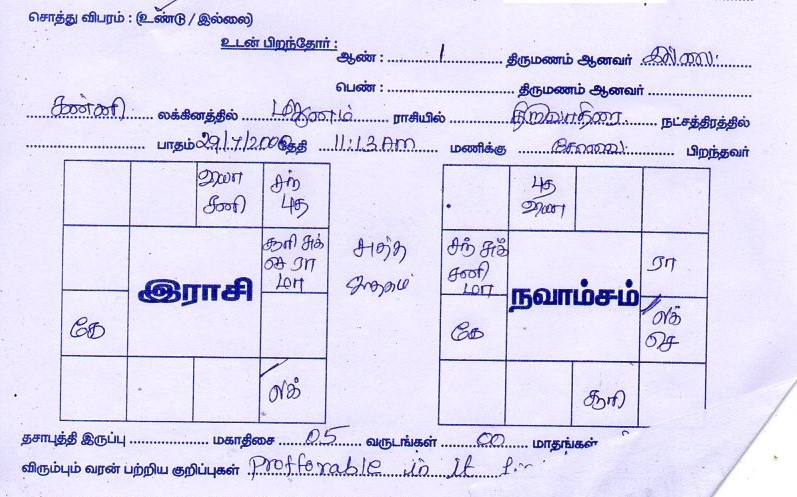 சொத்து விபரம் : (உண்டு / இல்லை)
உடன் பிறந்தோர் :
ஆண் : 1 திருமணம் ஆனவர் இல்லை
பெண் : திருமணம் ஆனவர்
கன்னி லக்கினத்தில் மிதுனம் ராசியில் திருவாதிரை நட்சத்திரத்தில்
பாதம் 29/7/2000 தேதி 11:13 AM மணிக்கு பிறந்தவர்
சந் புத
சனி
சூரி சுக் செ ரா மா
கே
லக்
இராசி
புத
சந் சுக் சனி மா
ரா
கே
லக் செ
சூரி
நவாம்சம்
தசாபுத்தி இருப்பு மகாதிசை 05 வருடங்கள் 00 மாதங்கள்
விரும்பும் வரன் பற்றிய குறிப்புகள் Profferable in it